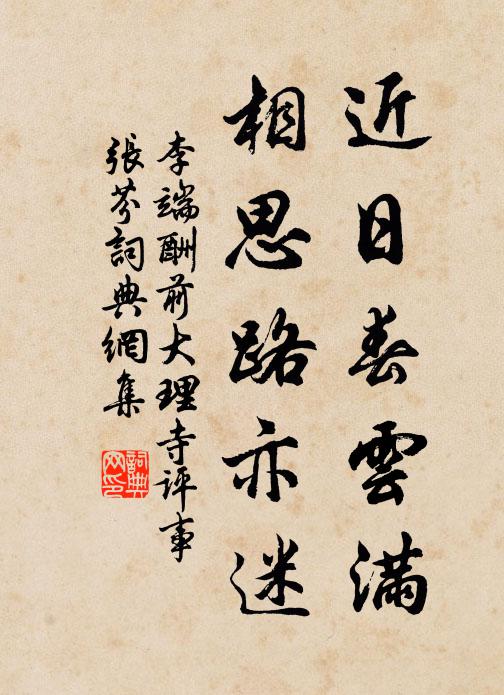 近日春雲滿
相思路亦迷
李端酬前大理寺評事
張芬詞典網集
詞典
网印